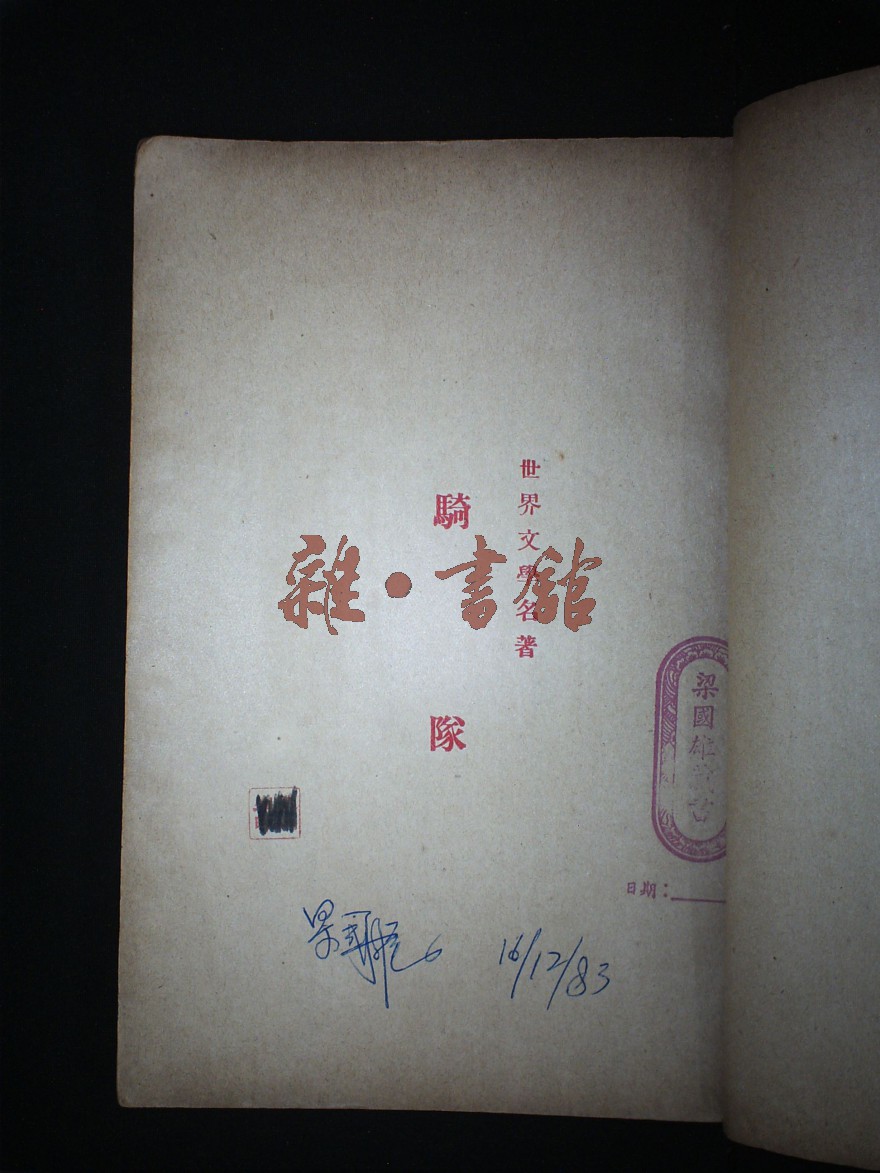 世界文學名著
騎隊
雜·書館
梁國雄
日期：
16/12/83